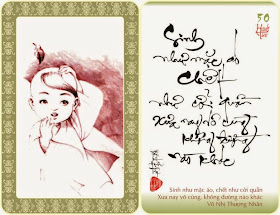 50
Sinh
như mặc áo
Chết
như cởi quần
Xưa nay vô cùng
không đường
nào khác
Sinh như mặc áo, chết như cởi quần
Xưa nay vô cùng, không đường nào khác
Vô Nhi Thượng Nhân